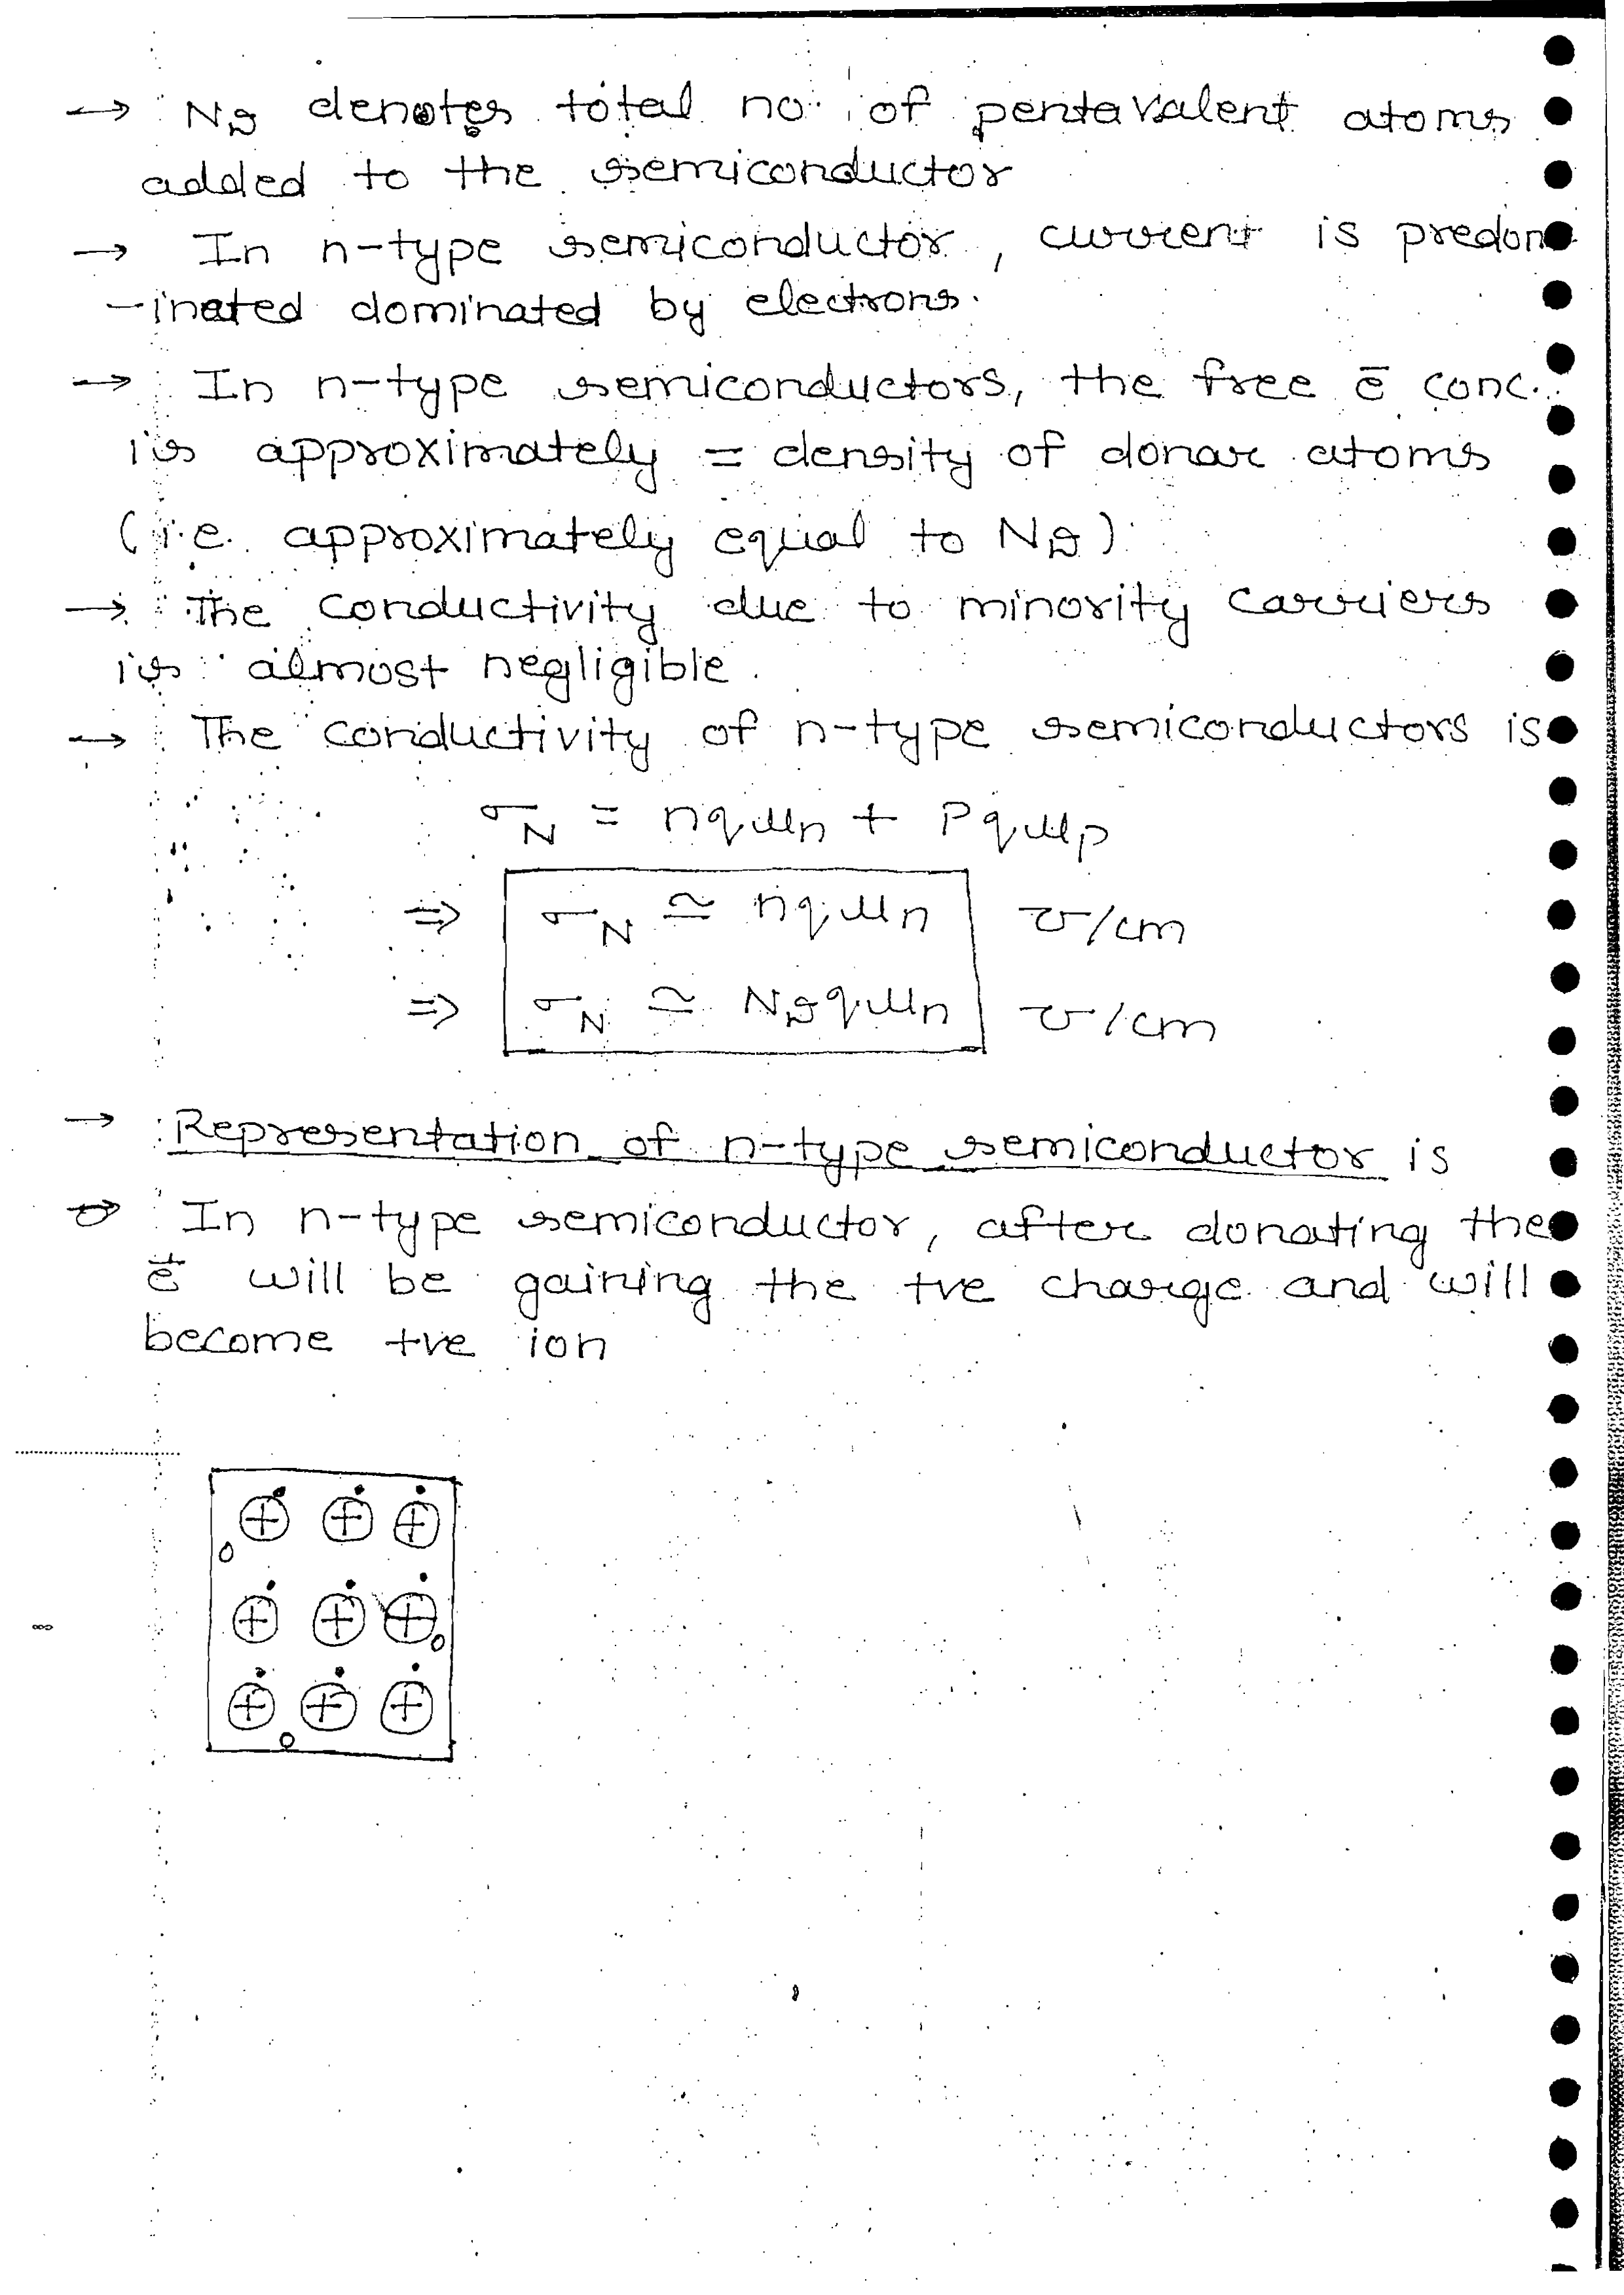 → N_D denotes total no. of pentavalent atoms
added to the semiconductor
→ In n-type semiconductor, current is predom
-inated dominated by electrons.
→ In n-type semiconductors, the free ē conc.
is approximately = density of donar atoms
(i.e. approximately equal to N_D)
→ The conductivity due to minority carriers
is almost negligible.
→ The conductivity of n-type semiconductors is
σ_N = nqμn + Pqμp
⇒ σ_N ≃ nqμn ℧/cm
⇒ σ_N ≃ N_D qμn ℧/cm
→ Representation of n-type semiconductor is
→ In n-type semiconductor, after donating the
ē will be gaining the +ve charge and will
become +ve ion
+ + +
+ + +
+ + +